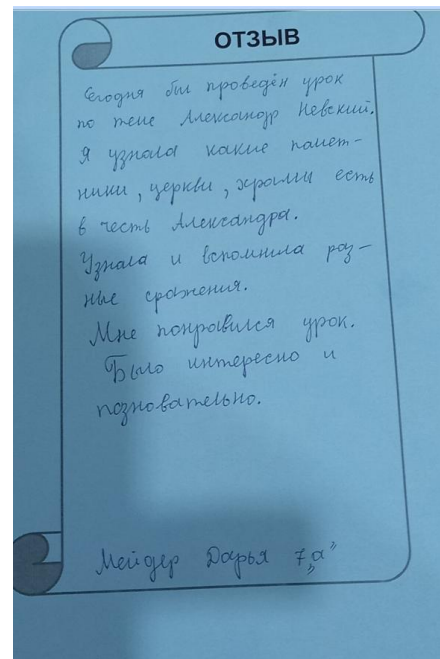 ОТЗЫВ
Сегодня был проведён урок
по теме Александр Невский.
Я узнала какие памят-
ники, церкви, храмы есть
в честь Александра.
Узнала и вспомнила раз-
ные сражения.
Мне понравился урок.
Было интересно и
позновательно.
Мейдер Дарья 7 „а"